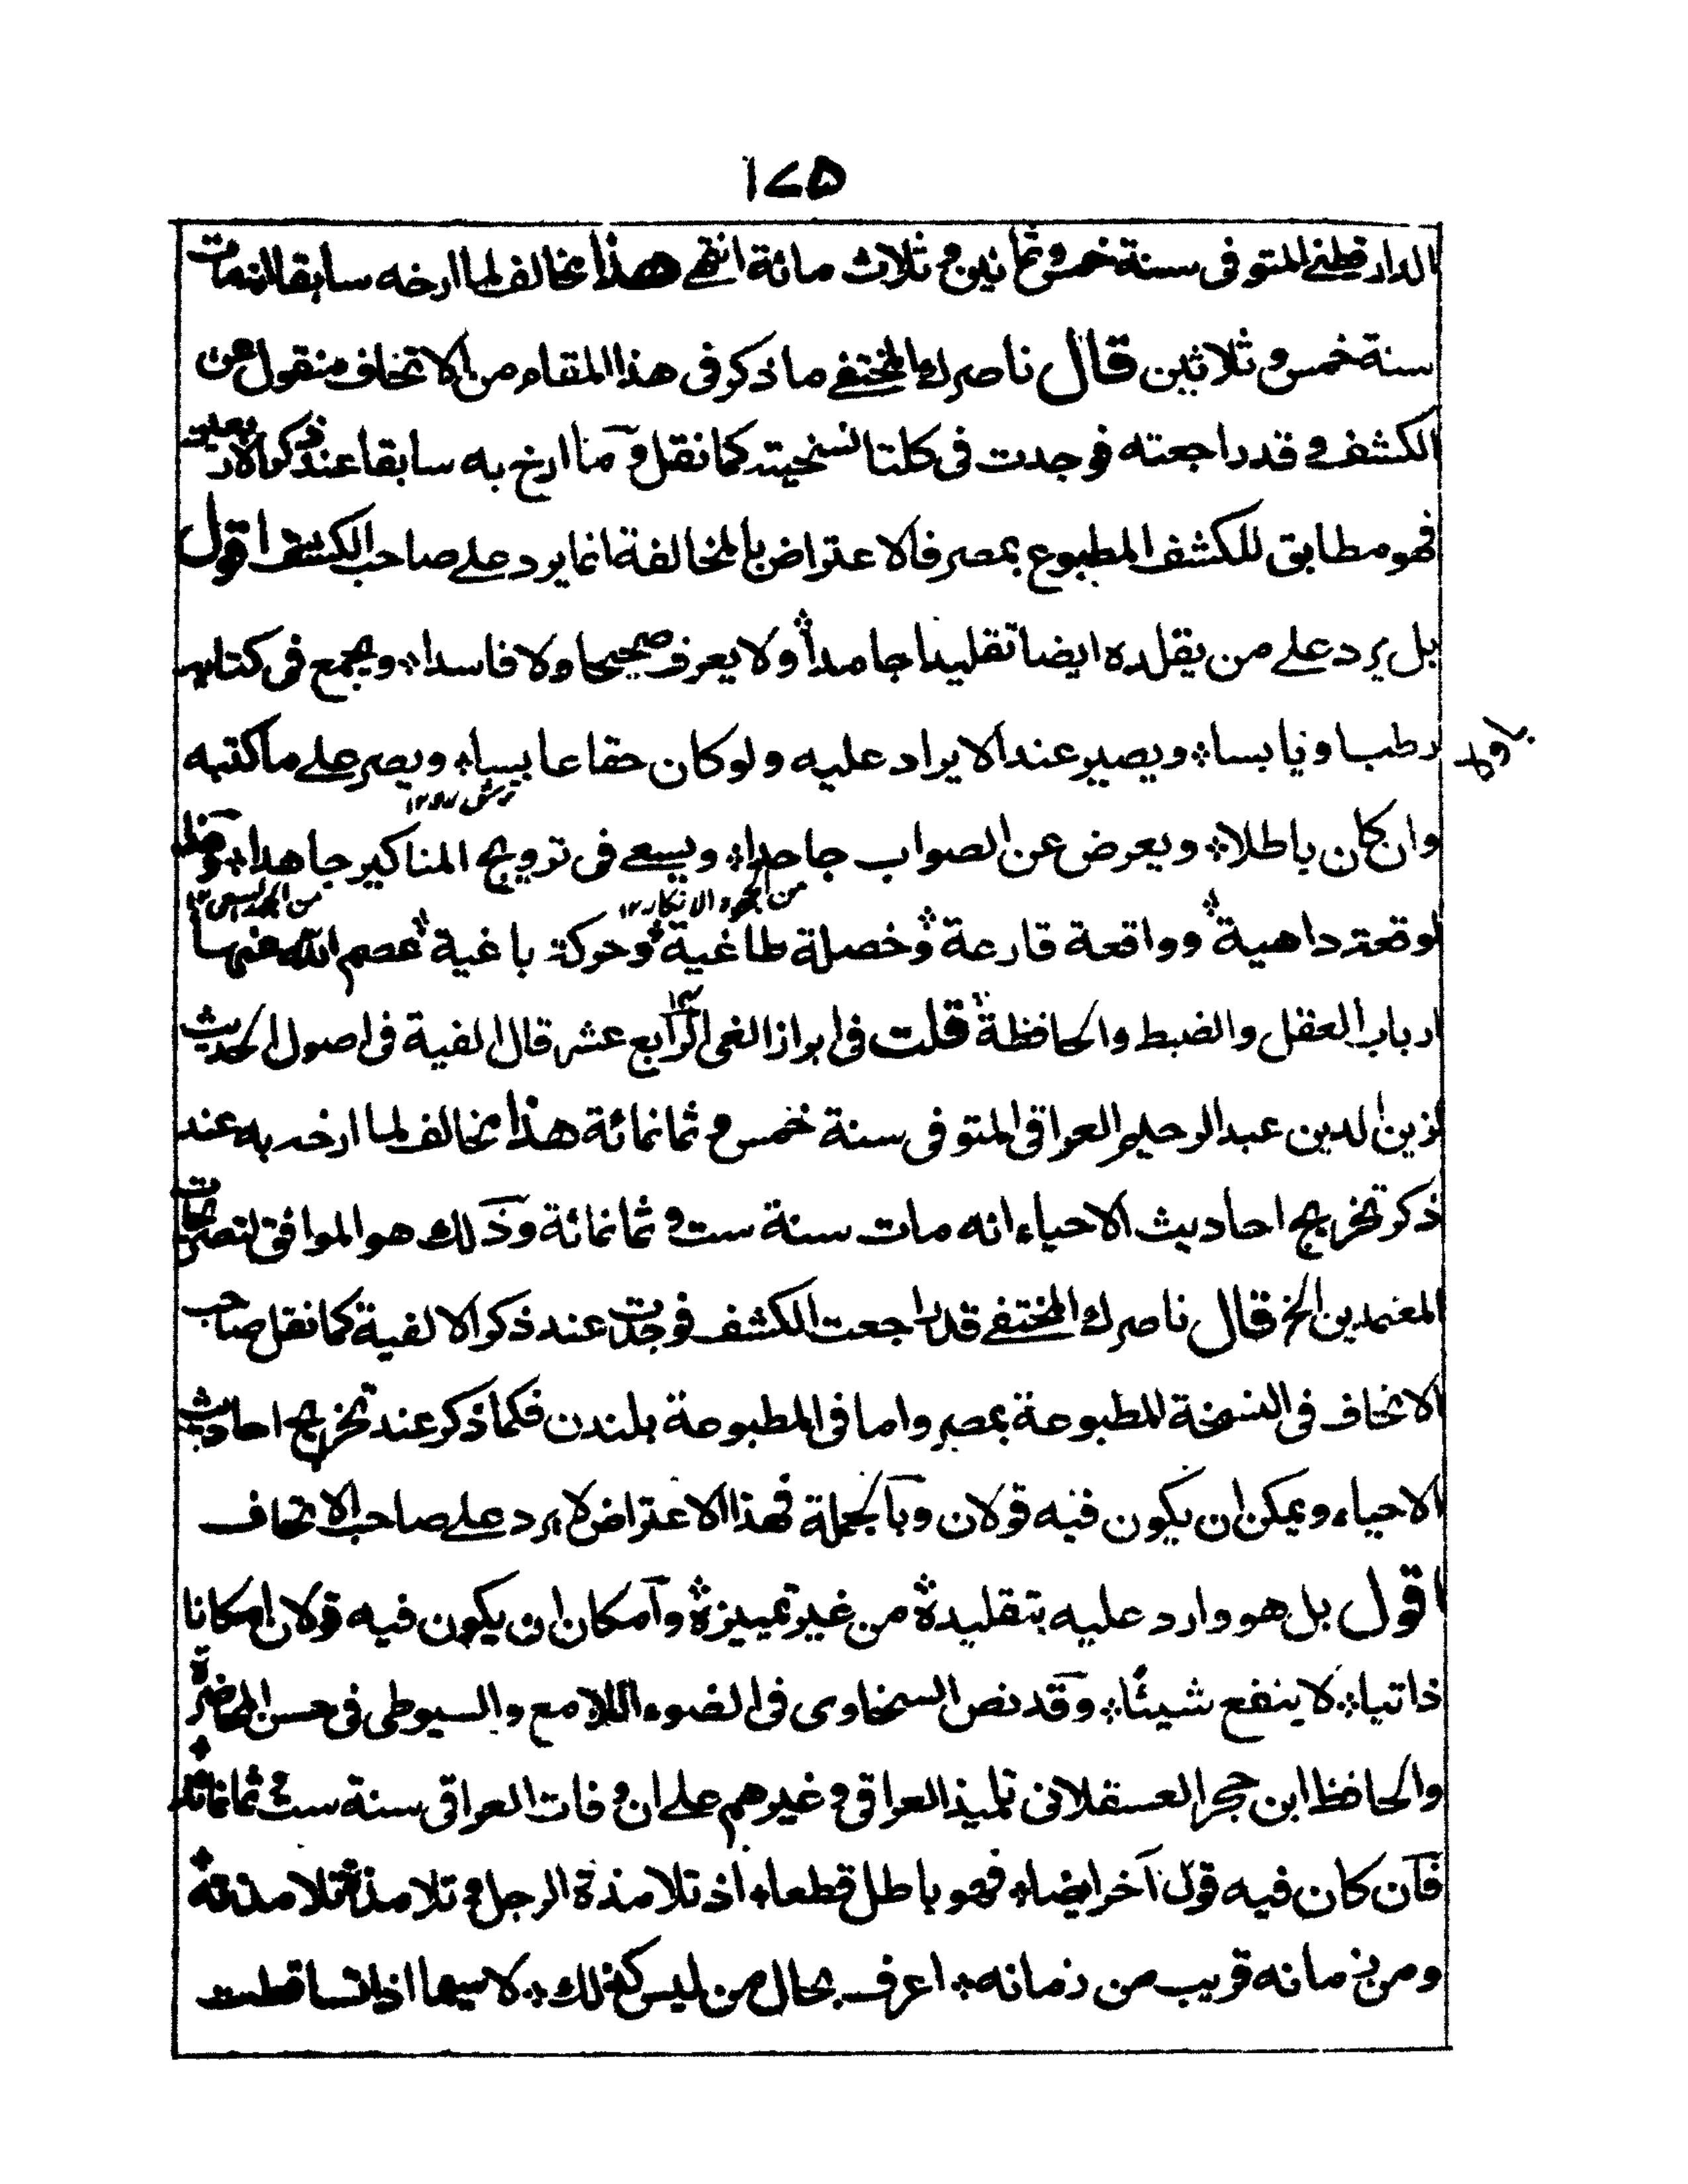 ١٧٥
الدارقطني المتوفى سنة خمس وثمانين وثلاث مائة انتهى هذا مخالف لما ارخه سابقا انه مات
سنة خمس وثلاثين قال ناصرك المختفي ما ذكر في هذا المقام من الاتحاف منقول عن
الكشف وقد راجعته فوجدت في كلتا نسختيه كما نقل وما ارخ به سابقا عند ذكر الاربعين
فهو مطابق للكشف المطبوع بمصر فالاعتراض بالمخالفة انما يرد على صاحب الكشف اقول
بل يرد على من يقلده ايضا تقليدا جامدا ولا يعرف صحيحا ولا فاسدا ويجمع في كتابه
رطبا ويابسا ويصير عند الايراد عليه ولو كان حقا عابسا ويصر على ما كتبه
ترش ١٢
وان كان باطلا ويعرض عن الصواب جاحدا ويسعى في ترويج المناكير جاهدا
من الجحود الانكار ١٢
لوقعة داهية وواقعة قارعة وخصلة طاغية وحركة باغية عصم الله عنها
ارباب العقل والضبط والحافظة قلت في ابراز الغي الرابع عشر قال الفية في اصول الحديث
لزين الدين عبد الرحيم العراقي المتوفى سنة خمس وثمانمائة هذا مخالف لما ارخه به عند
ذكر تخريج احاديث الاحياء انه مات سنة ست وثمانمائة وذلك هو الموافق لتصريحات
المعتمدين الخ قال ناصرك المختفي قد راجعت الكشف فوجدت عند ذكر الالفية كما نقل صاحب
الاتحاف في النسخة المطبوعة بمصر واما في المطبوعة بلندن فكما ذكر عند تخريج احاديث
الاحياء ويمكن ان يكون فيه قولان وبالجملة فهذا الاعتراض لا يرد على صاحب الاتحاف
اقول بل هو وارد عليه بتقليده من غير تمييزه وامكان ان يكون فيه قولان امكانا
ذاتيا لا ينفع شيئا وقد نص السخاوي في الضوء اللامع والسيوطي في حسن المحاضرة
والحافظ ابن حجر العسقلاني تلميذ العراقي وغيرهم على ان وفات العراقي سنة ست وثمانمائة
فان كان فيه قول آخر ايضا فهو باطل قطعا اذ تلامذة الرجل وتلامذة تلامذته
ومن زمانه قريب من زمانه اعرف بحال من ليس كذلك لا سيما اذا تساقطت